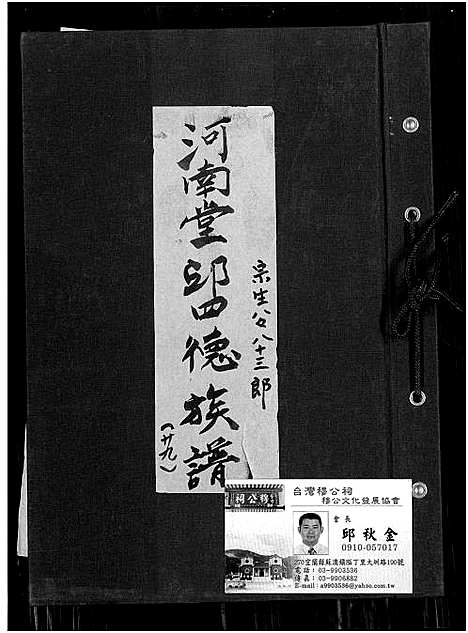 河南堂邱四德族譜
宗生公八十三郎
(廿九)
穆公祠
台灣穆公祠
穆公文化發展協會
會長
邱秋金
0910-057017
270宜蘭縣蘇澳鎮隘丁里大圳路190號
電話:03-9903536
傳真:03-9906882
E-mail:a9903536@yahoo.com.tw